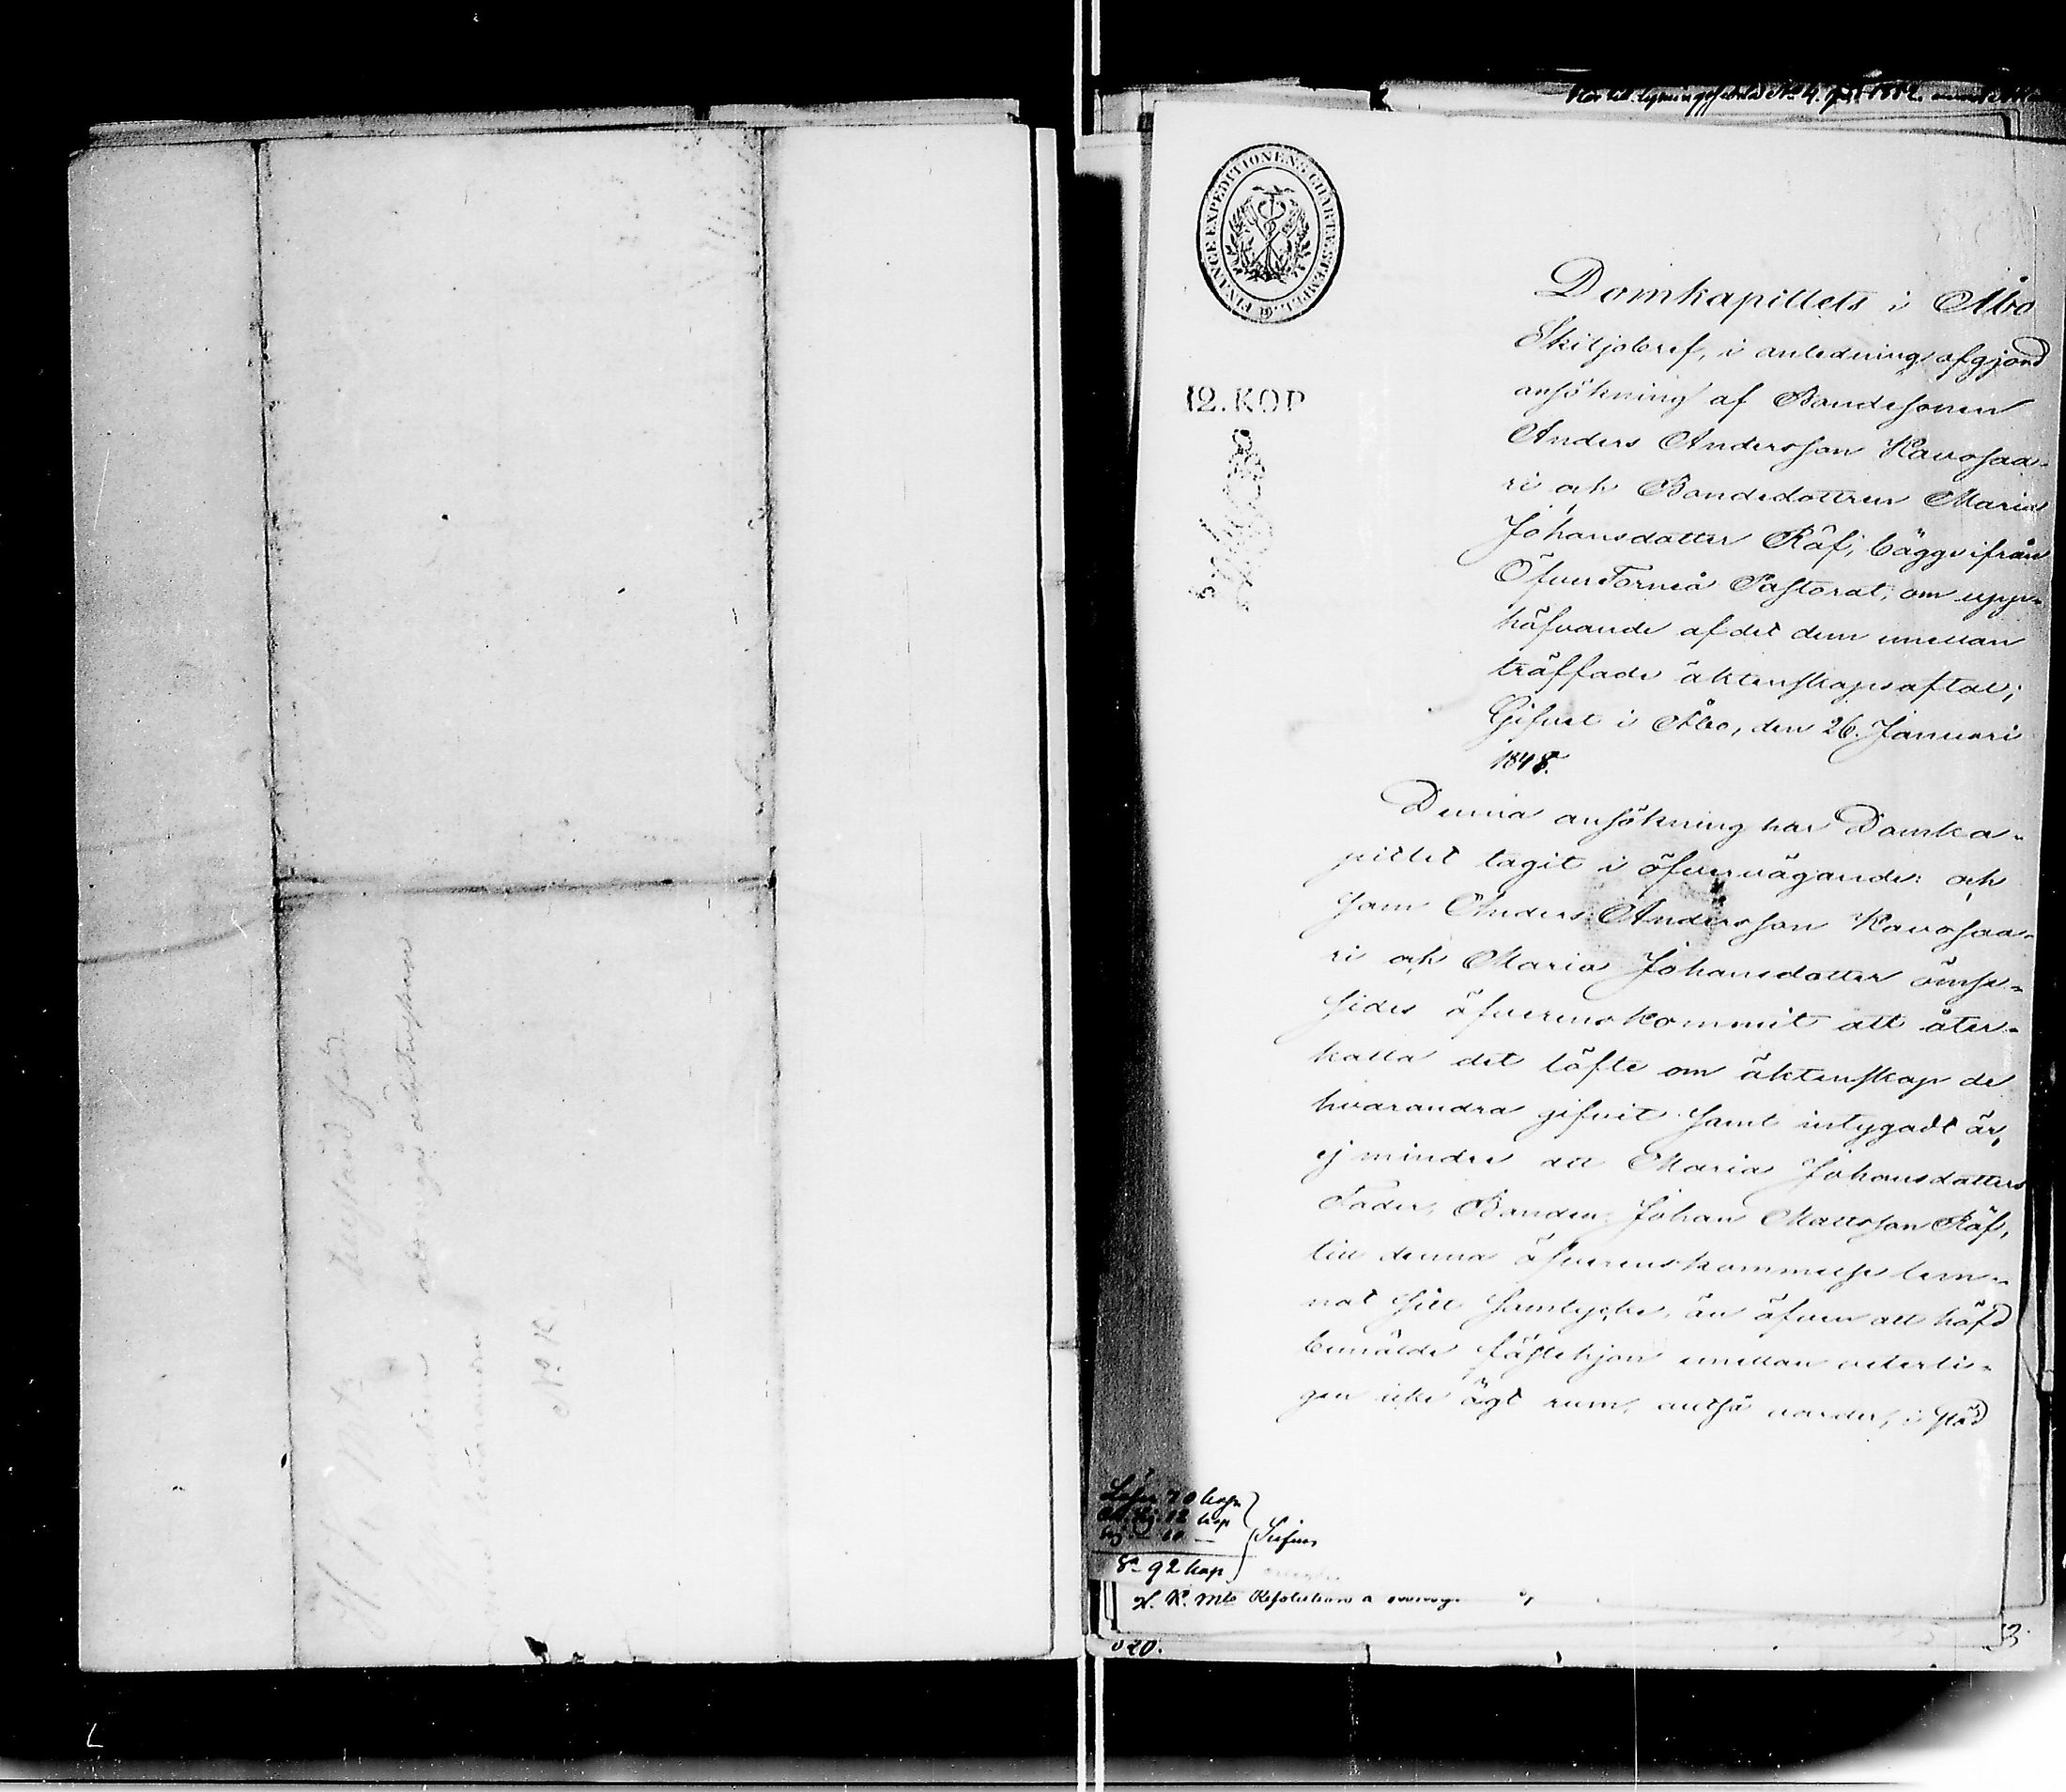 FINANCE EXPEDITIONENS CHARTÆ STEMPEL.
12. KOP
Domkapitlets i Åbo
Skiljobref, i anledning afgjord
ansökning af Bondesonen
Anders Andersson Kavosaa-
ri och Bondedottren Maria
Johansdotter Räf, bägge ifrån
ÖfverTorneå Pastorat, om upp-
häfvande af det dem emellan
träffade äktenskapsaftal;
Gifvet i Åbo, den 26. Januari
1848.
Denna ansökning har Domka-
pitlet tagit i öfvervägande: och
som Anders Andersson Kavosaa-
ri och Maria Johansdotter ömse-
sides öfverenskommit att åter-
kalla det löfte om äktenskap de
hvarandra gifvit samt intygadt är,
ej mindre att Maria Johansdotters
Fader, Bonden Johan Mattsson Räf,
till denna öfverenskommelse lem-
nat sitt samtycke, än äfven att häfd
bemälde fästehjon emellan veterli-
gen icke ägt rum, altså varder, i stöd
Lösen 70 kop
12 kop
60
92 kop
H. K. Mts Resolution
No. K.